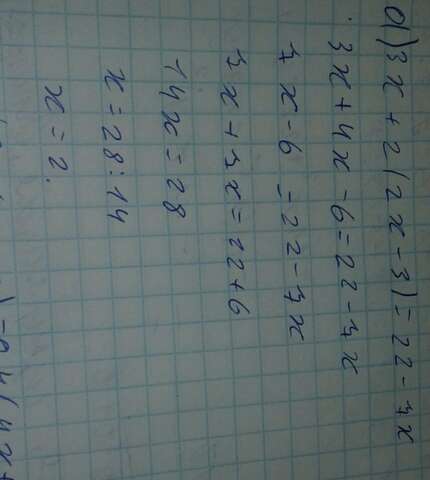 а) 3x + 2(2x - 3) = 22 - 7x
3x + 4x - 6 = 22 - 7x
7x - 6 = 22 - 7x
7x + 7x = 22 + 6
14x = 28
x = 28 : 14
x = 2.
) - 0,4(4x +